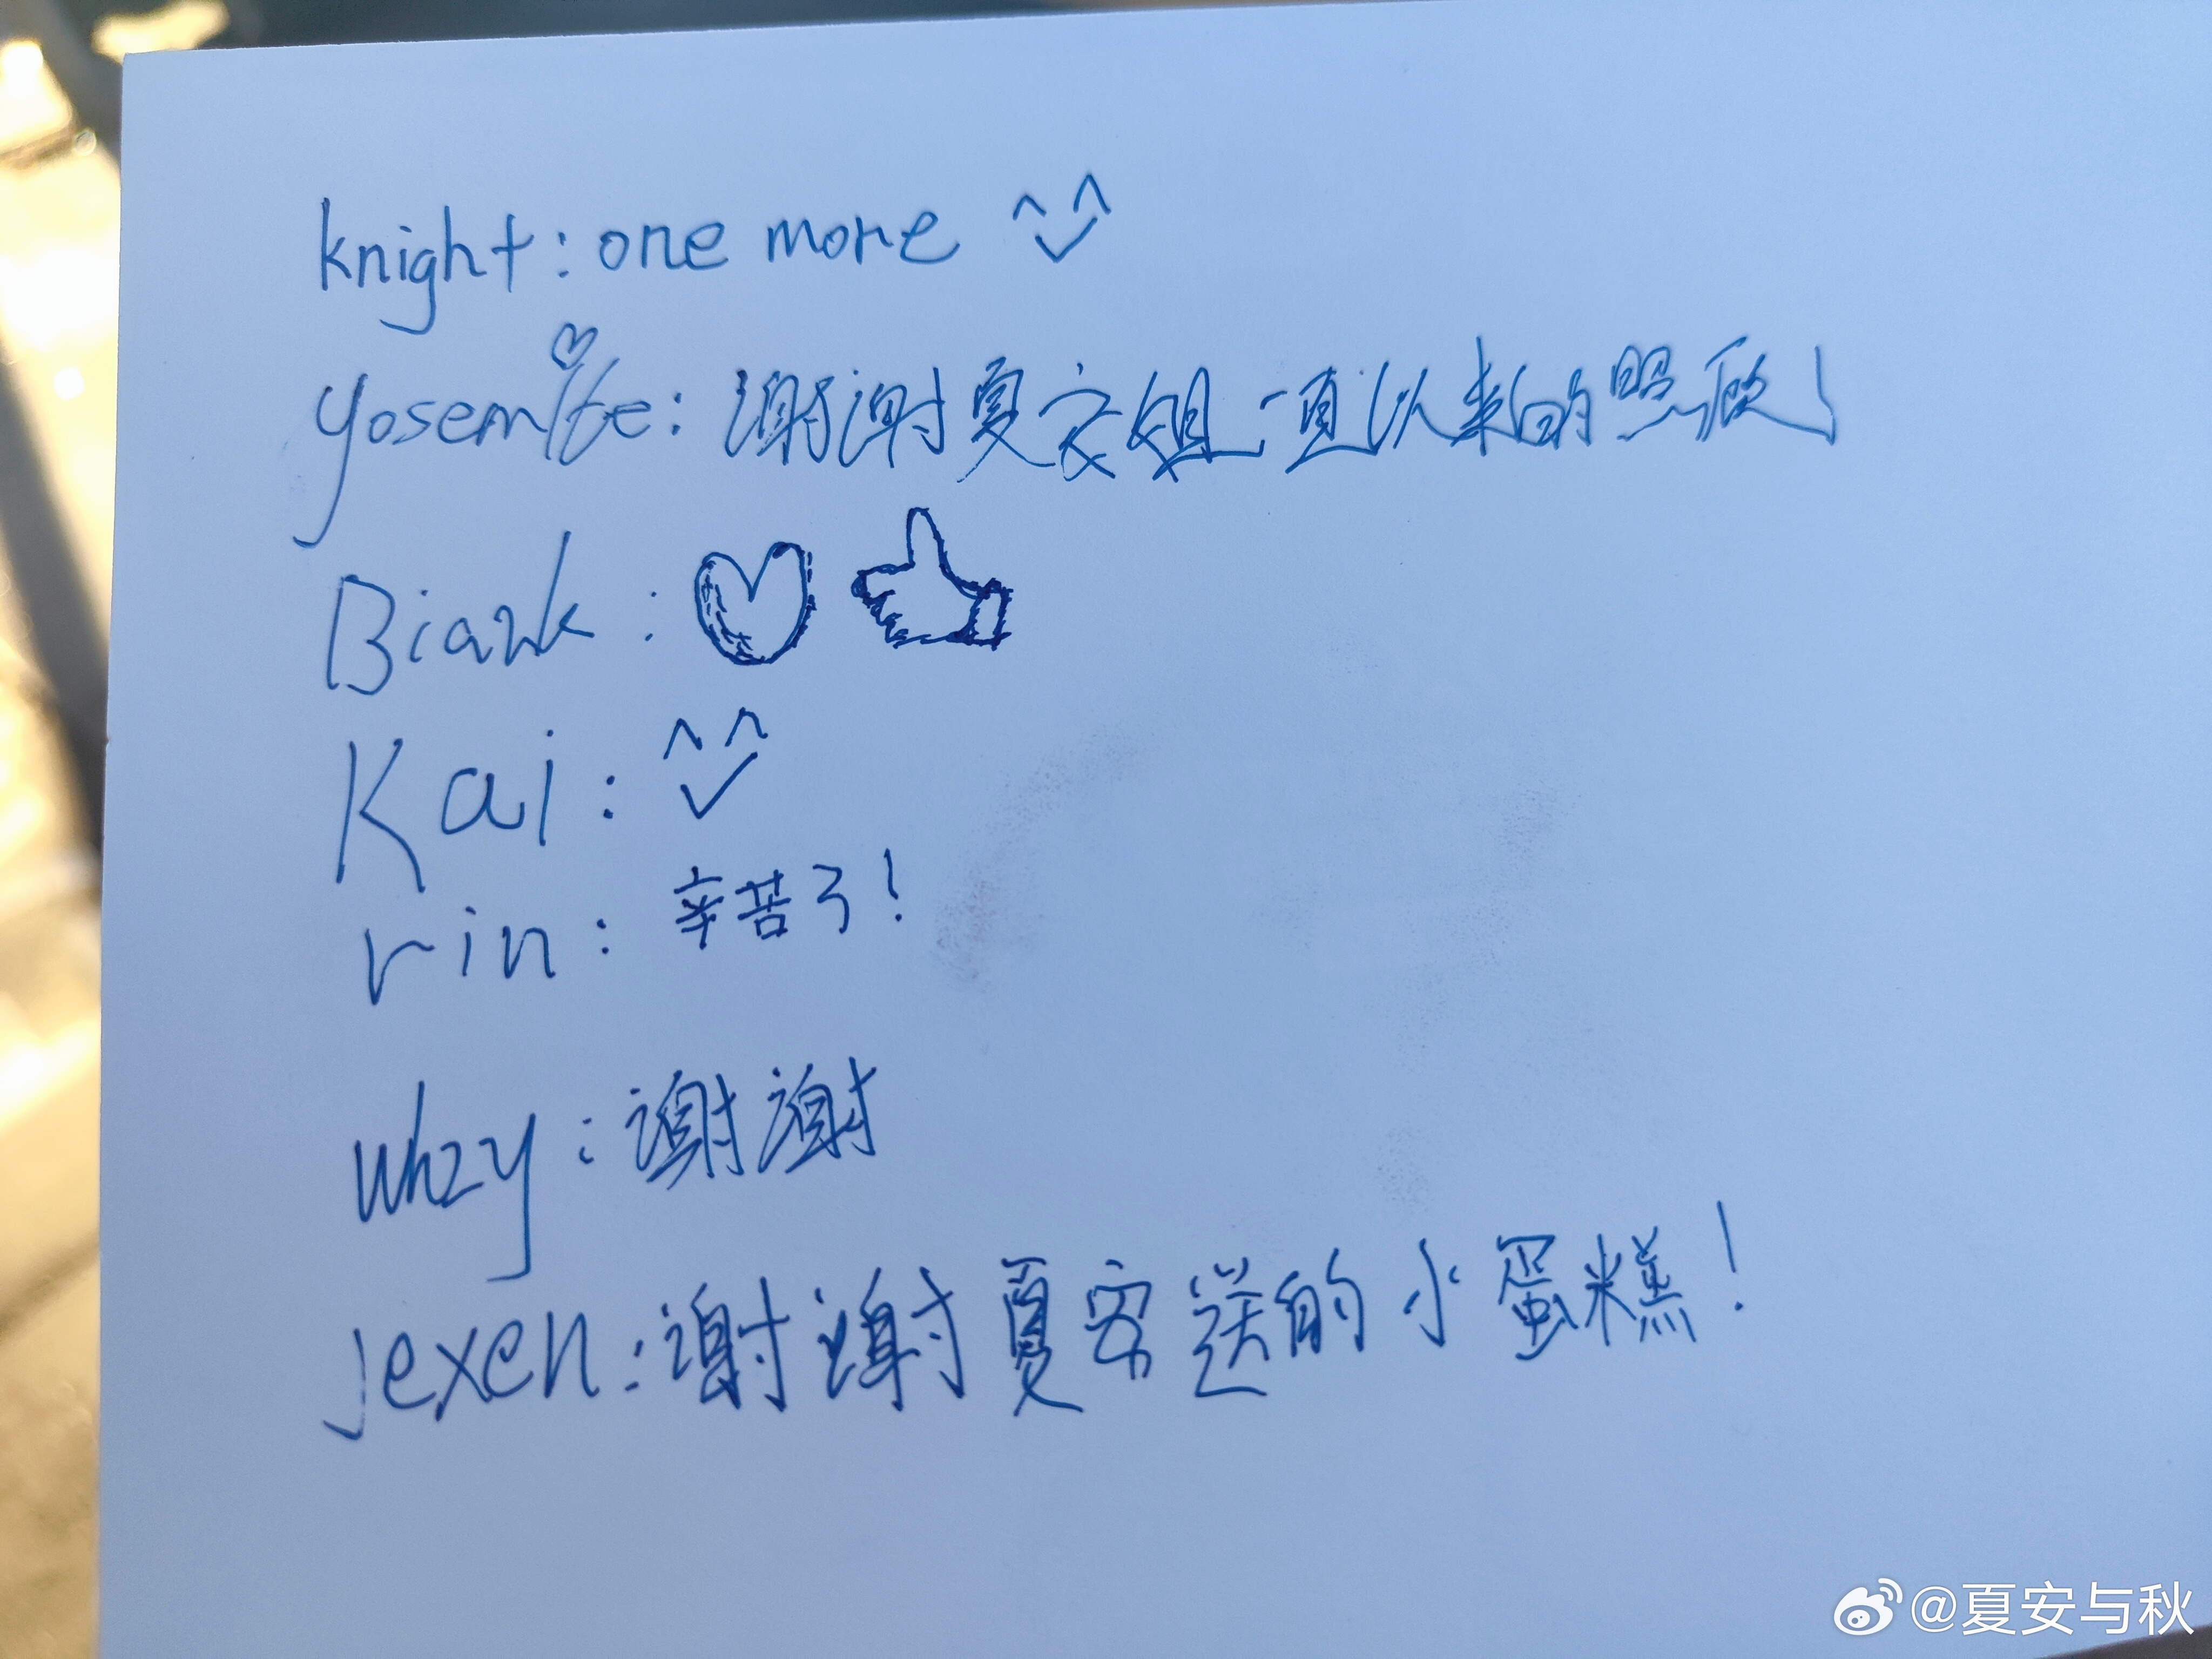 knight: one more ^^
yosemite: 谢谢夏安姐一直以来的照顾！
Biank:
Kai: ^^
rin: 辛苦了！
whzy: 谢谢
Jexen: 谢谢夏安送的小蛋糕！
@夏安与秋